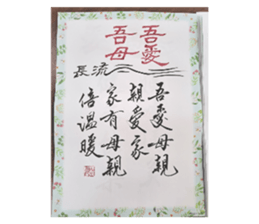 吾愛
吾母
流長
吾愛母親
親愛家
家有母親
倍溫暖